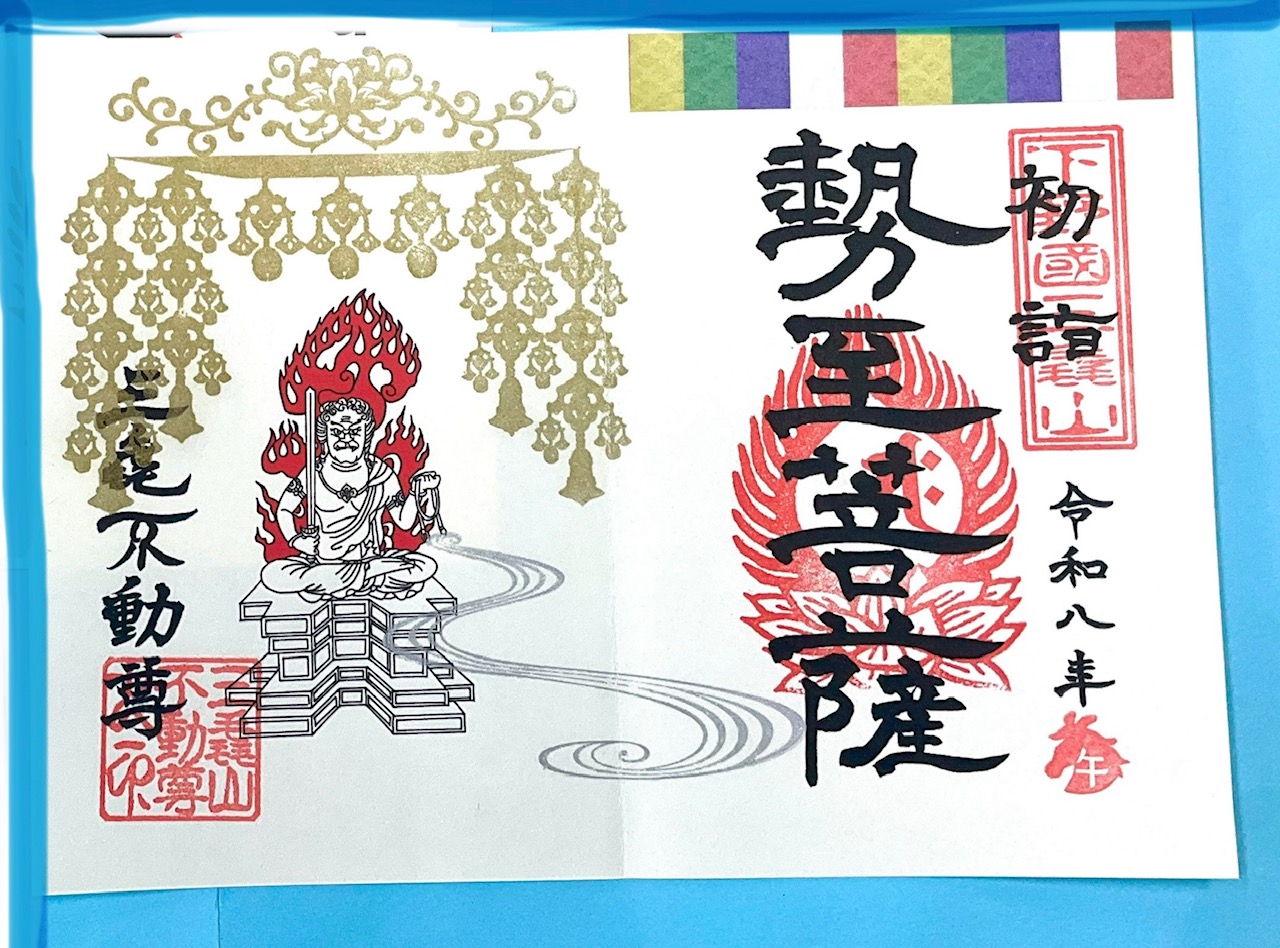 下野國三毳山
初詣
令和八年
午
勢至菩薩
三毳不動尊
三毳山
不動尊
之印